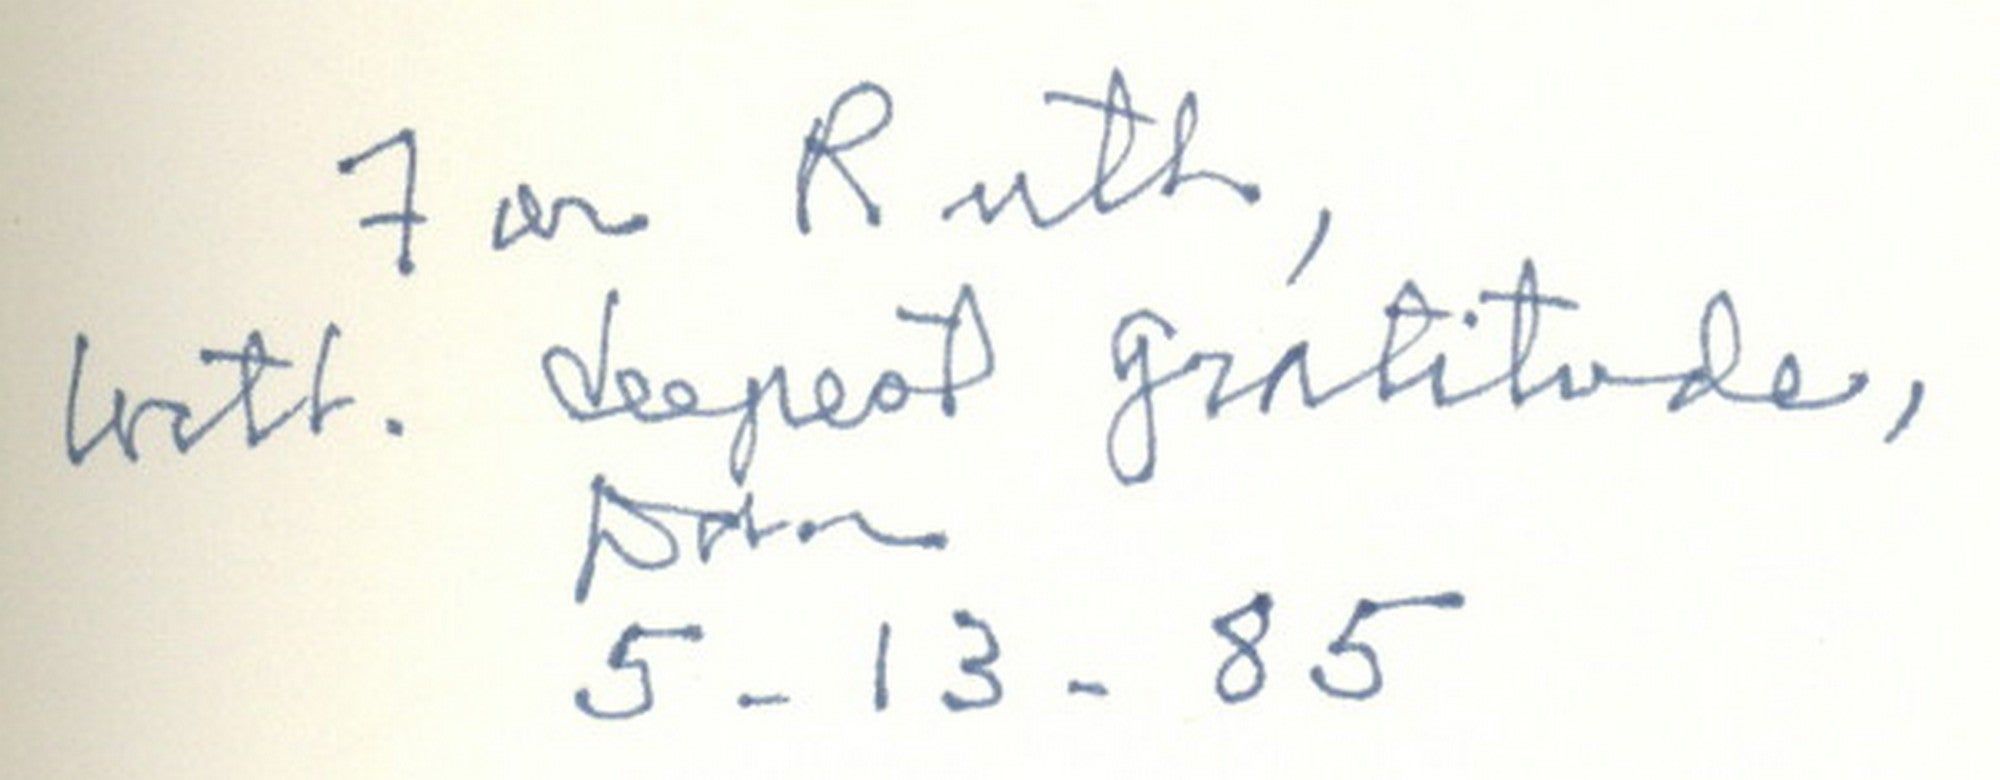 For Ruth,
With deepest gratitude,
5-13-85